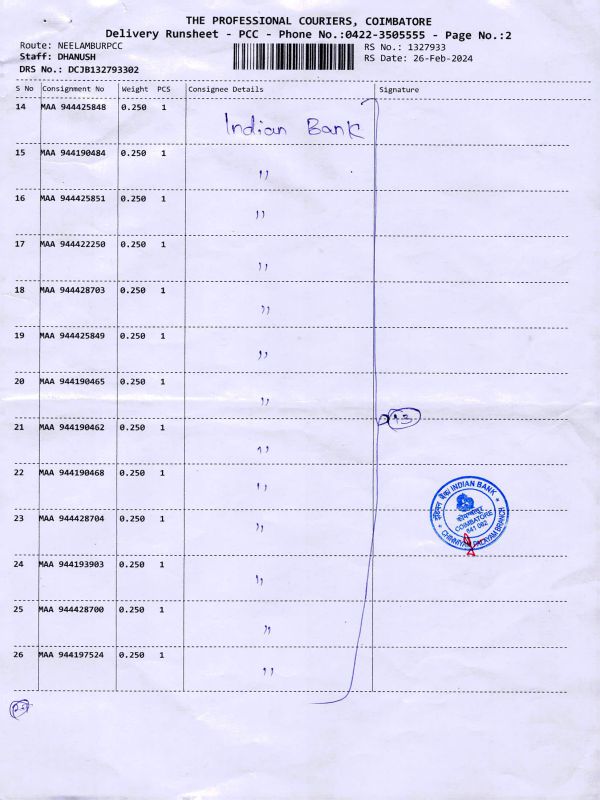 THE PROFESSIONAL COURIERS, COIMBATORE
Delivery Runsheet - PCC - Phone No.:0422-3505555 - Page No.:2
Route: NEELAMBURPCC RS No.: 1327933
Staff: DHANUSH RS Date: 26-Feb-2024
DRS No.: DCJB132793302
S No Consignment No Weight PCS Consignee Details Signature
14 MAA 944425848 0.250 1 Indian Bank
15 MAA 944190484 0.250 1 ,,
16 MAA 944425851 0.250 1 ,,
17 MAA 944422250 0.250 1 ,,
18 MAA 944428703 0.250 1 ,,
19 MAA 944425849 0.250 1 ,,
20 MAA 944190465 0.250 1 ,,
13
21 MAA 944190462 0.250 1 ,,
22 MAA 944190468 0.250 1 ,,
23 MAA 944428704 0.250 1 ,,
इंडियन बैंक INDIAN BANK
कोयम्बतूर
COIMBATORE
641 062
CHINNIYAM PALAYAM BRANCH
24 MAA 944193903 0.250 1 ,,
25 MAA 944428700 0.250 1 ,,
26 MAA 944197524 0.250 1 ,,